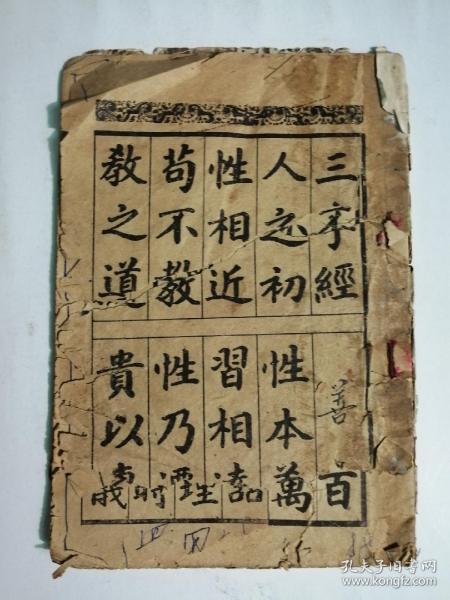 三字經
人之初
性相近
苟不教
教之道
善百
性本萬
習相
性乃
貴以
孔夫子旧书网
www.kongfz.com